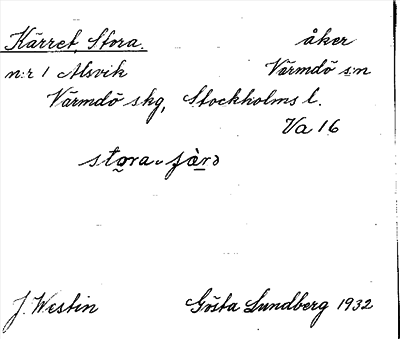 Kärret, Stora. åker
n:r 1 Alsvik Värmdö s:n
Värmdö skg, Stockholms l.
Va 16
J. Westin Gösta Lundberg 1932